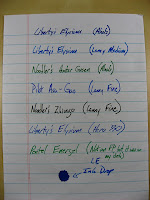 Liberty's Elysium (Ahab)
Liberty's Elysium (Lamy Medium)
Noodler's Hunter Green (Ahab)
Pilot Ao-Gun (Lamy Fine)
Noodler's Zhivago (Lamy Fine)
Liberty's Elysium (Hero)
Pentel Energel (Not an FP, but it was on my desk)
LE
Ink Drop